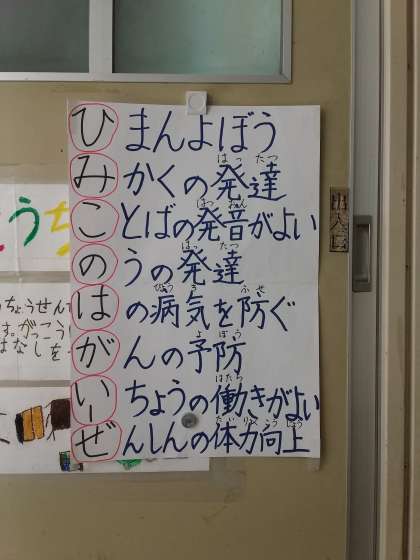 ひまんよぼう
みかくの発達
はっ たつ
ことばの発音がよい
はつ おん
のうの発達
はっ たつ
はの病気を防ぐ
びょう き ふせ
がんの予防
よ ぼう
いちょうの働きがよい
はたら
ぜんしんの体力向上
たい りょく こう じょう
うち
ちょうせん
す。がっこう
はなしを
出入口